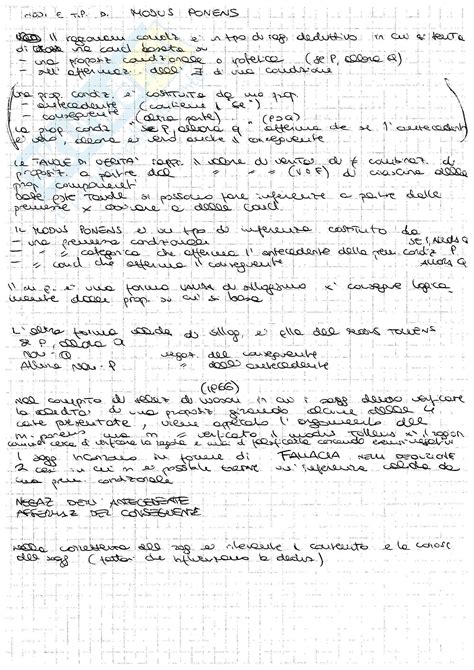 MODI E TIP. DI MODUS PONENS
Il ragionam condiz è un tipo di rag. deduttivo in cui si tenta
di trarre una concl basata su
- una proposiz condizionale o ipotetica (se P, allora Q)
- sull'affermaz dell' di una condizione
Una prop. condiz. è costituita da due prop.
- antecedente (contiene il "se")
- conseguente (altra parte) (P⊃Q)
La prop condiz "se P, allora q" afferma che se l'antecedente
è vero, allora è vero anche il conseguente
Le TAVOLE DI VERITÀ rappr. il valore di verità di ≠ combinaz. di
proposiz. a partire dal " " " (V o F) di ciascuna delle
prop component
base Tavole si possono fare inferenze a partire dalle
premesse x arrivare a delle concl.
IL MODUS PONENS è un tipo di inferenza costituito da
- una premessa condizionale se P, allora Q
- " " categorica che afferma l'antecedente della prem condiz P
- " concl che afferma il conseguente allora Q
Il m.p. è una forma VALIDA di sillogismo xk consegue logica
mente dalle prop. su cui si basa
L'altra forma valida di sillog. è quella del MODUS TOLLENS
se P, allora Q
Non-Q negaz. del conseguente
Allora Non-P " dell'antecedente
(1966)
Nel compito di selez di Wason in cui i sogg devono verificare
la validità di una proposiz girando alcune delle 4
carte presentate, viene operato l'argomento del
m. ponens ma n verificato il modus tollens xk i sogg
cerca di verificare la regola e non di falsificarla cercando esempi negativi
I sogg incorrono in forme di FALLACIA NELLA DEDUZIONE
2 casi in cui n è possibile trarre un'inferenza valida da
una prem condizionale
NEGAZ DELL'ANTECEDENTE
AFFERMAZ DEL CONSEGUENTE
Nella correttezza del rag è rilevante il contenuto e le conosc
del sogg (fattori che influenzano la deduz)